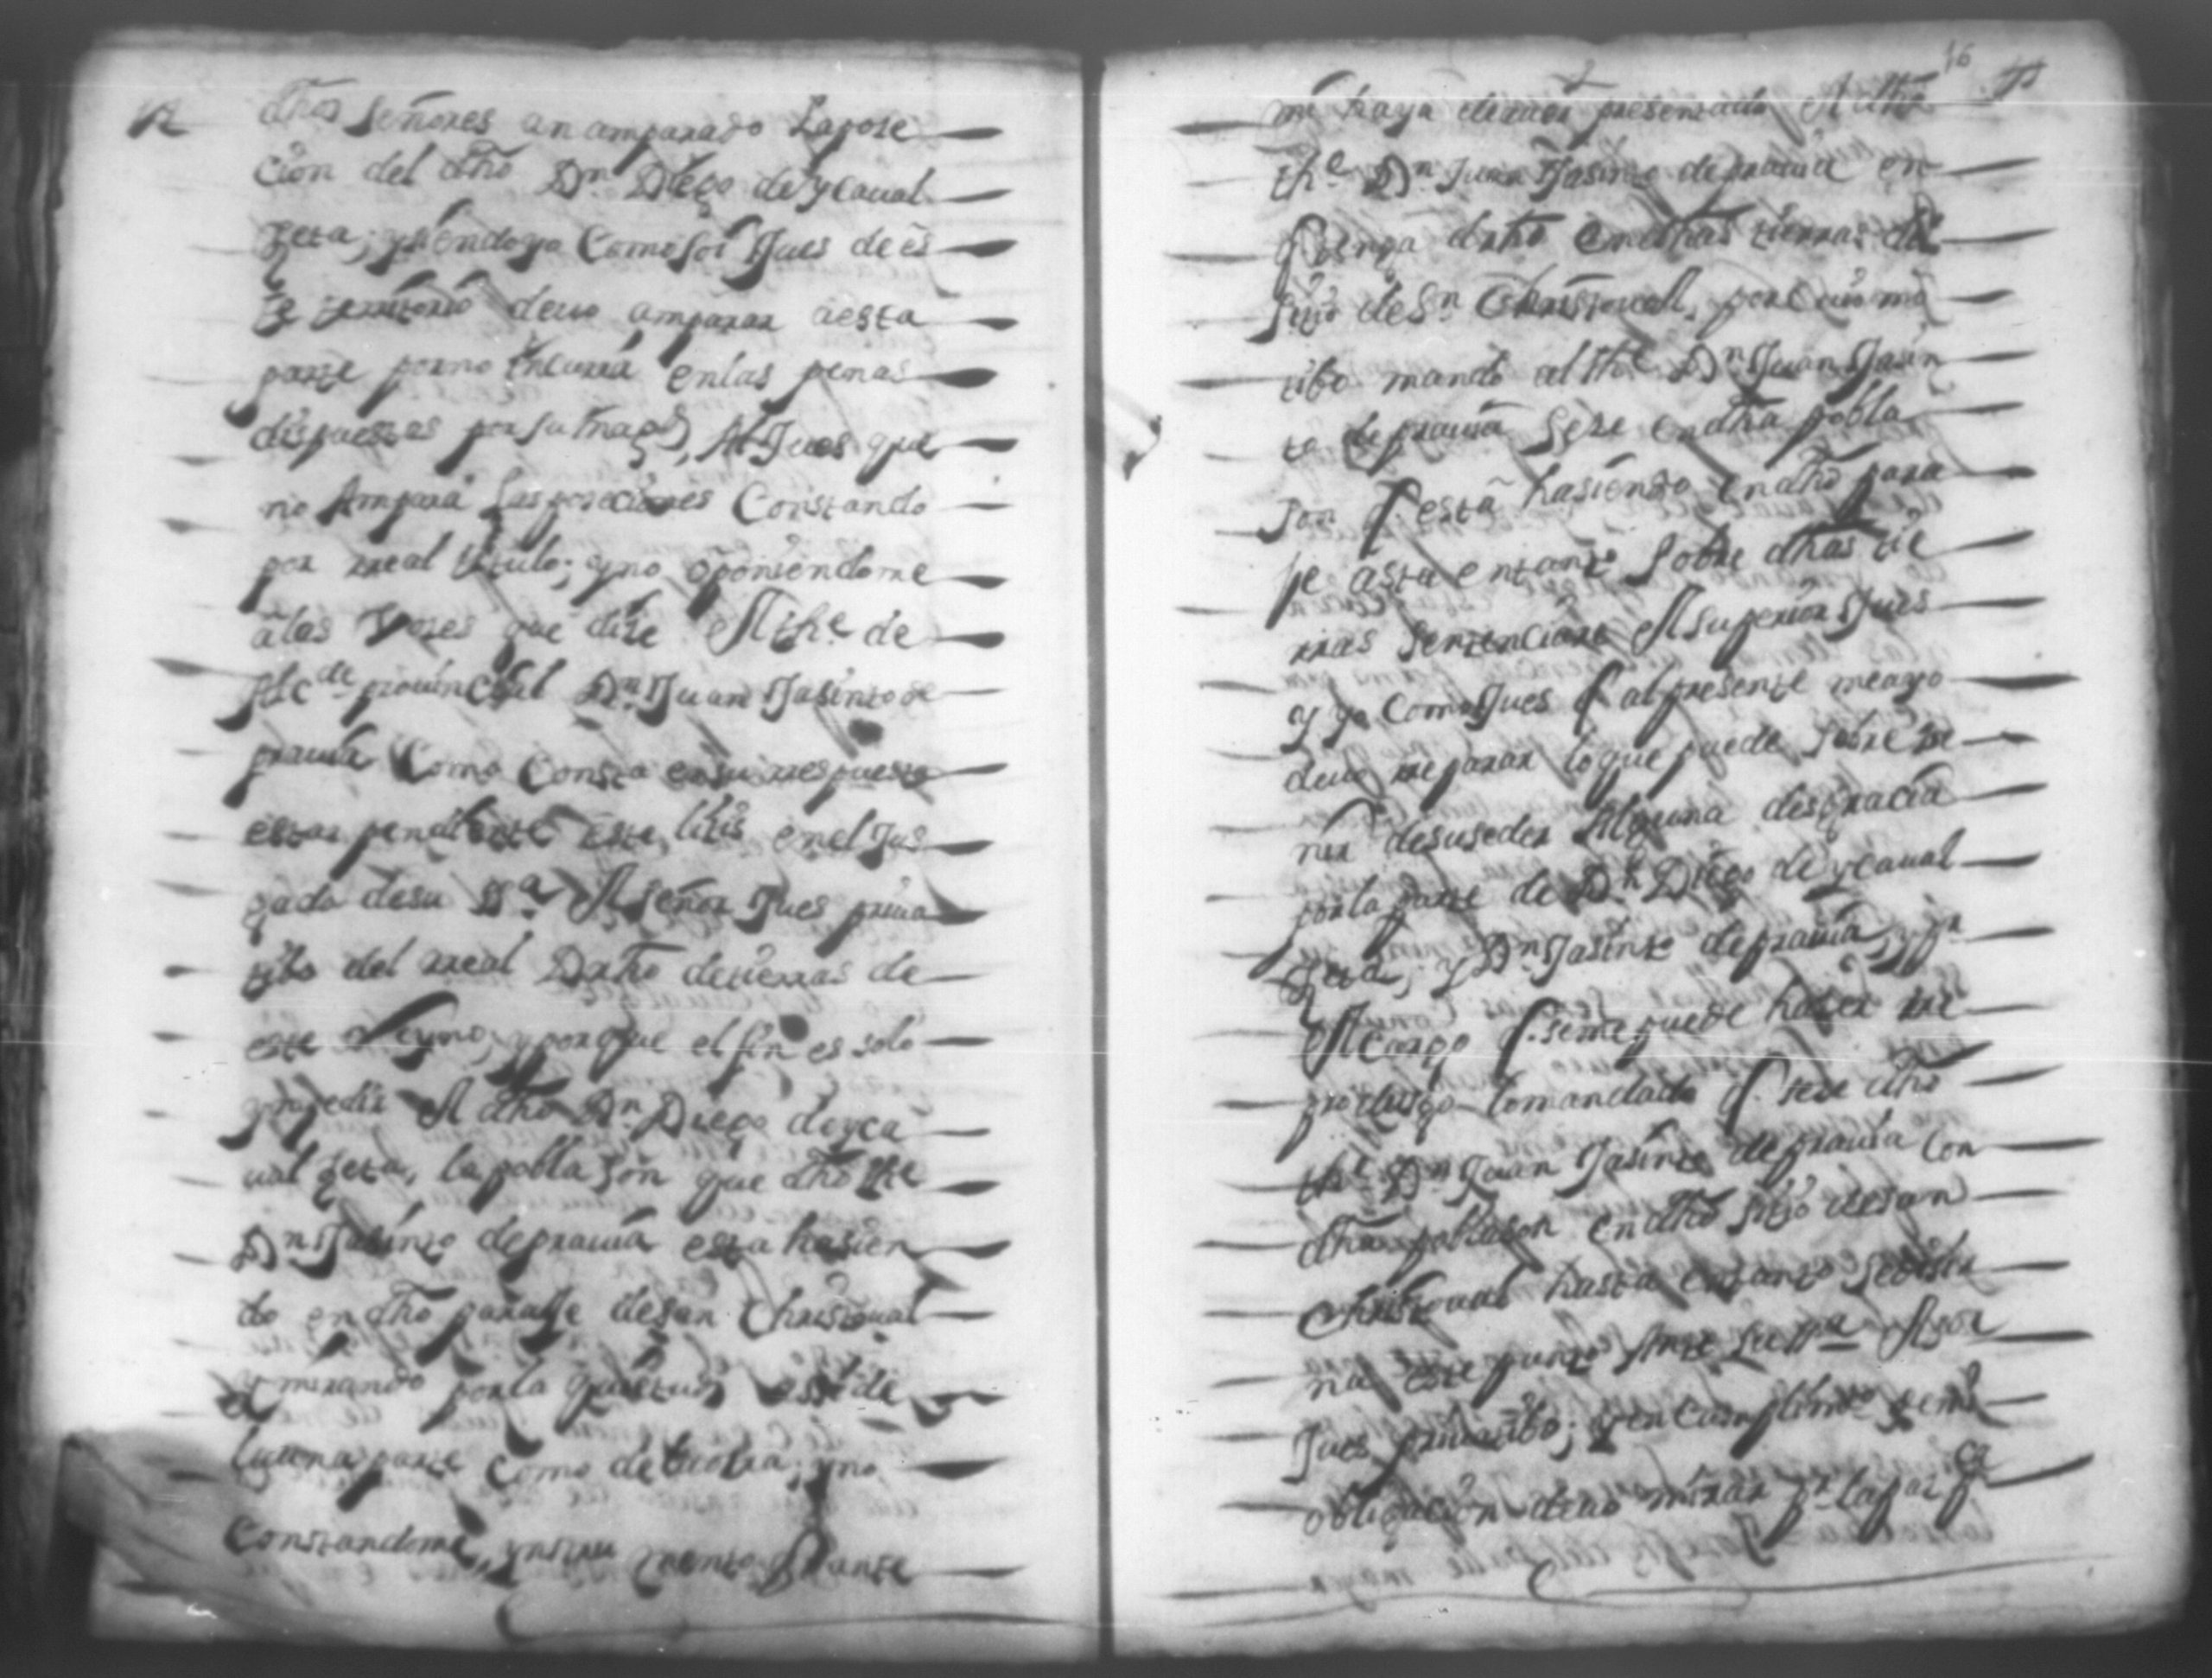 dhos señores an amparado La pose
cion del dho Dn Diego de ycaual
zeta, y siendo yo Como soi Jues de es
te territorio deuo amparar aesta
parte por no Incurrir en las penas
dispuestas por su magd, Al Jues que
no Ampara las poseciones Constando
por rreal titulo; y no oponiendome
a las que dise el thte de
Alcde prouincial Dn Juan Jasinto de
prauia Como Consta en su rrespuesta
estar pendiente este litis en el Jus
gado de su ssa el señor Jues priua
tibo del rreal Drho de tierras de
este Reyno, y porque el fin es solo
ynpedir el dho Dn Diego de yca
ual zeta, la poblazon que dho the
Dn Jasinto de prauia esta hasien
do en dho paraje de san Christoual
y mirando por la quietud assi de
la una parte Como de la otra; y no
Constandome, ynstru mento Ante
16
mi haya el presentado el dho
the Dn Juan Jasinto de prauia en
q tenga drho en estas tierras del
sitio de Sn Christoual, por Cuio mo
tibo mando al the Dn Juan Jasin
to de prauia sese en dha pobla
son q esta hasiendo en dho para
je asta en tanto sobre dhas tie
rras sentenciare el superior Jues
y yo Como Jues q al presente me ayo
deuo rreparar lo que puede sobre be
nir de suseder Alguna desgracia
por la parte de Dn Diego de ycaual
zeta, y Dn Jasinto de prauia, y pr
el cargo q. se me puede haser rre
produsgo lo mandado q. sese dho
the Dn Juan Jasinto de prauia Con
dha poblason en dho sitio de san
Christoual hasta en tanto se
na este punto Ante su ssa el sor
Jues priuatibo; y en Cumplimto de mi
obligacion deuo mirar pr la paz